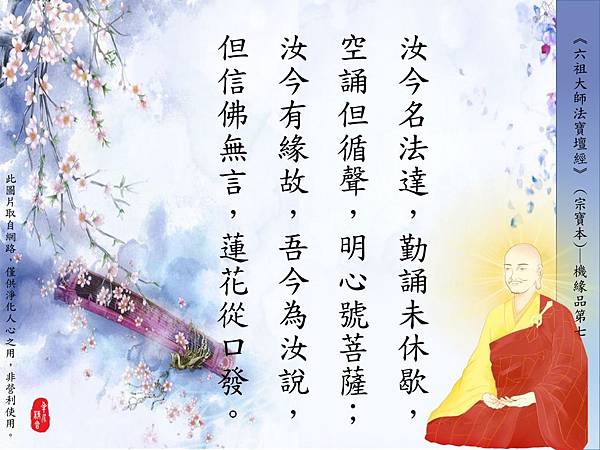 《六祖大師法寶壇經》（宗寶本）—機緣品第七
汝今名法達，勤誦未休歇，
空誦但循聲，明心號菩薩；
汝今有緣故，吾今為汝說，
但信佛無言，蓮花從口發。
此圖片取自網路，僅供淨化人心之用，非營利使用。